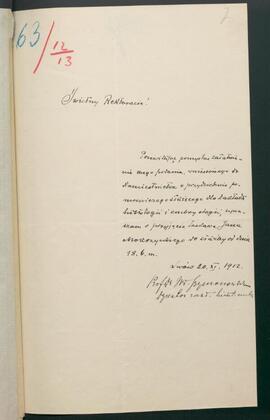 63/12/13
2
Świetny Rektoracie!
Powołując pomyślne załatwie-
nie mego podania, wniesionego do
Namiestnictwa o przydzielenie po-
mocniczego służącego dla Zakładu
histologii i embryologii, upra-
szam o przyjęcie Jana
do służby od dnia
18. b. m.
Lwów 20. XI. 1912.
Prof. Dr Wł. Szymonowicz
Dyrektor zakł. hist. emb.